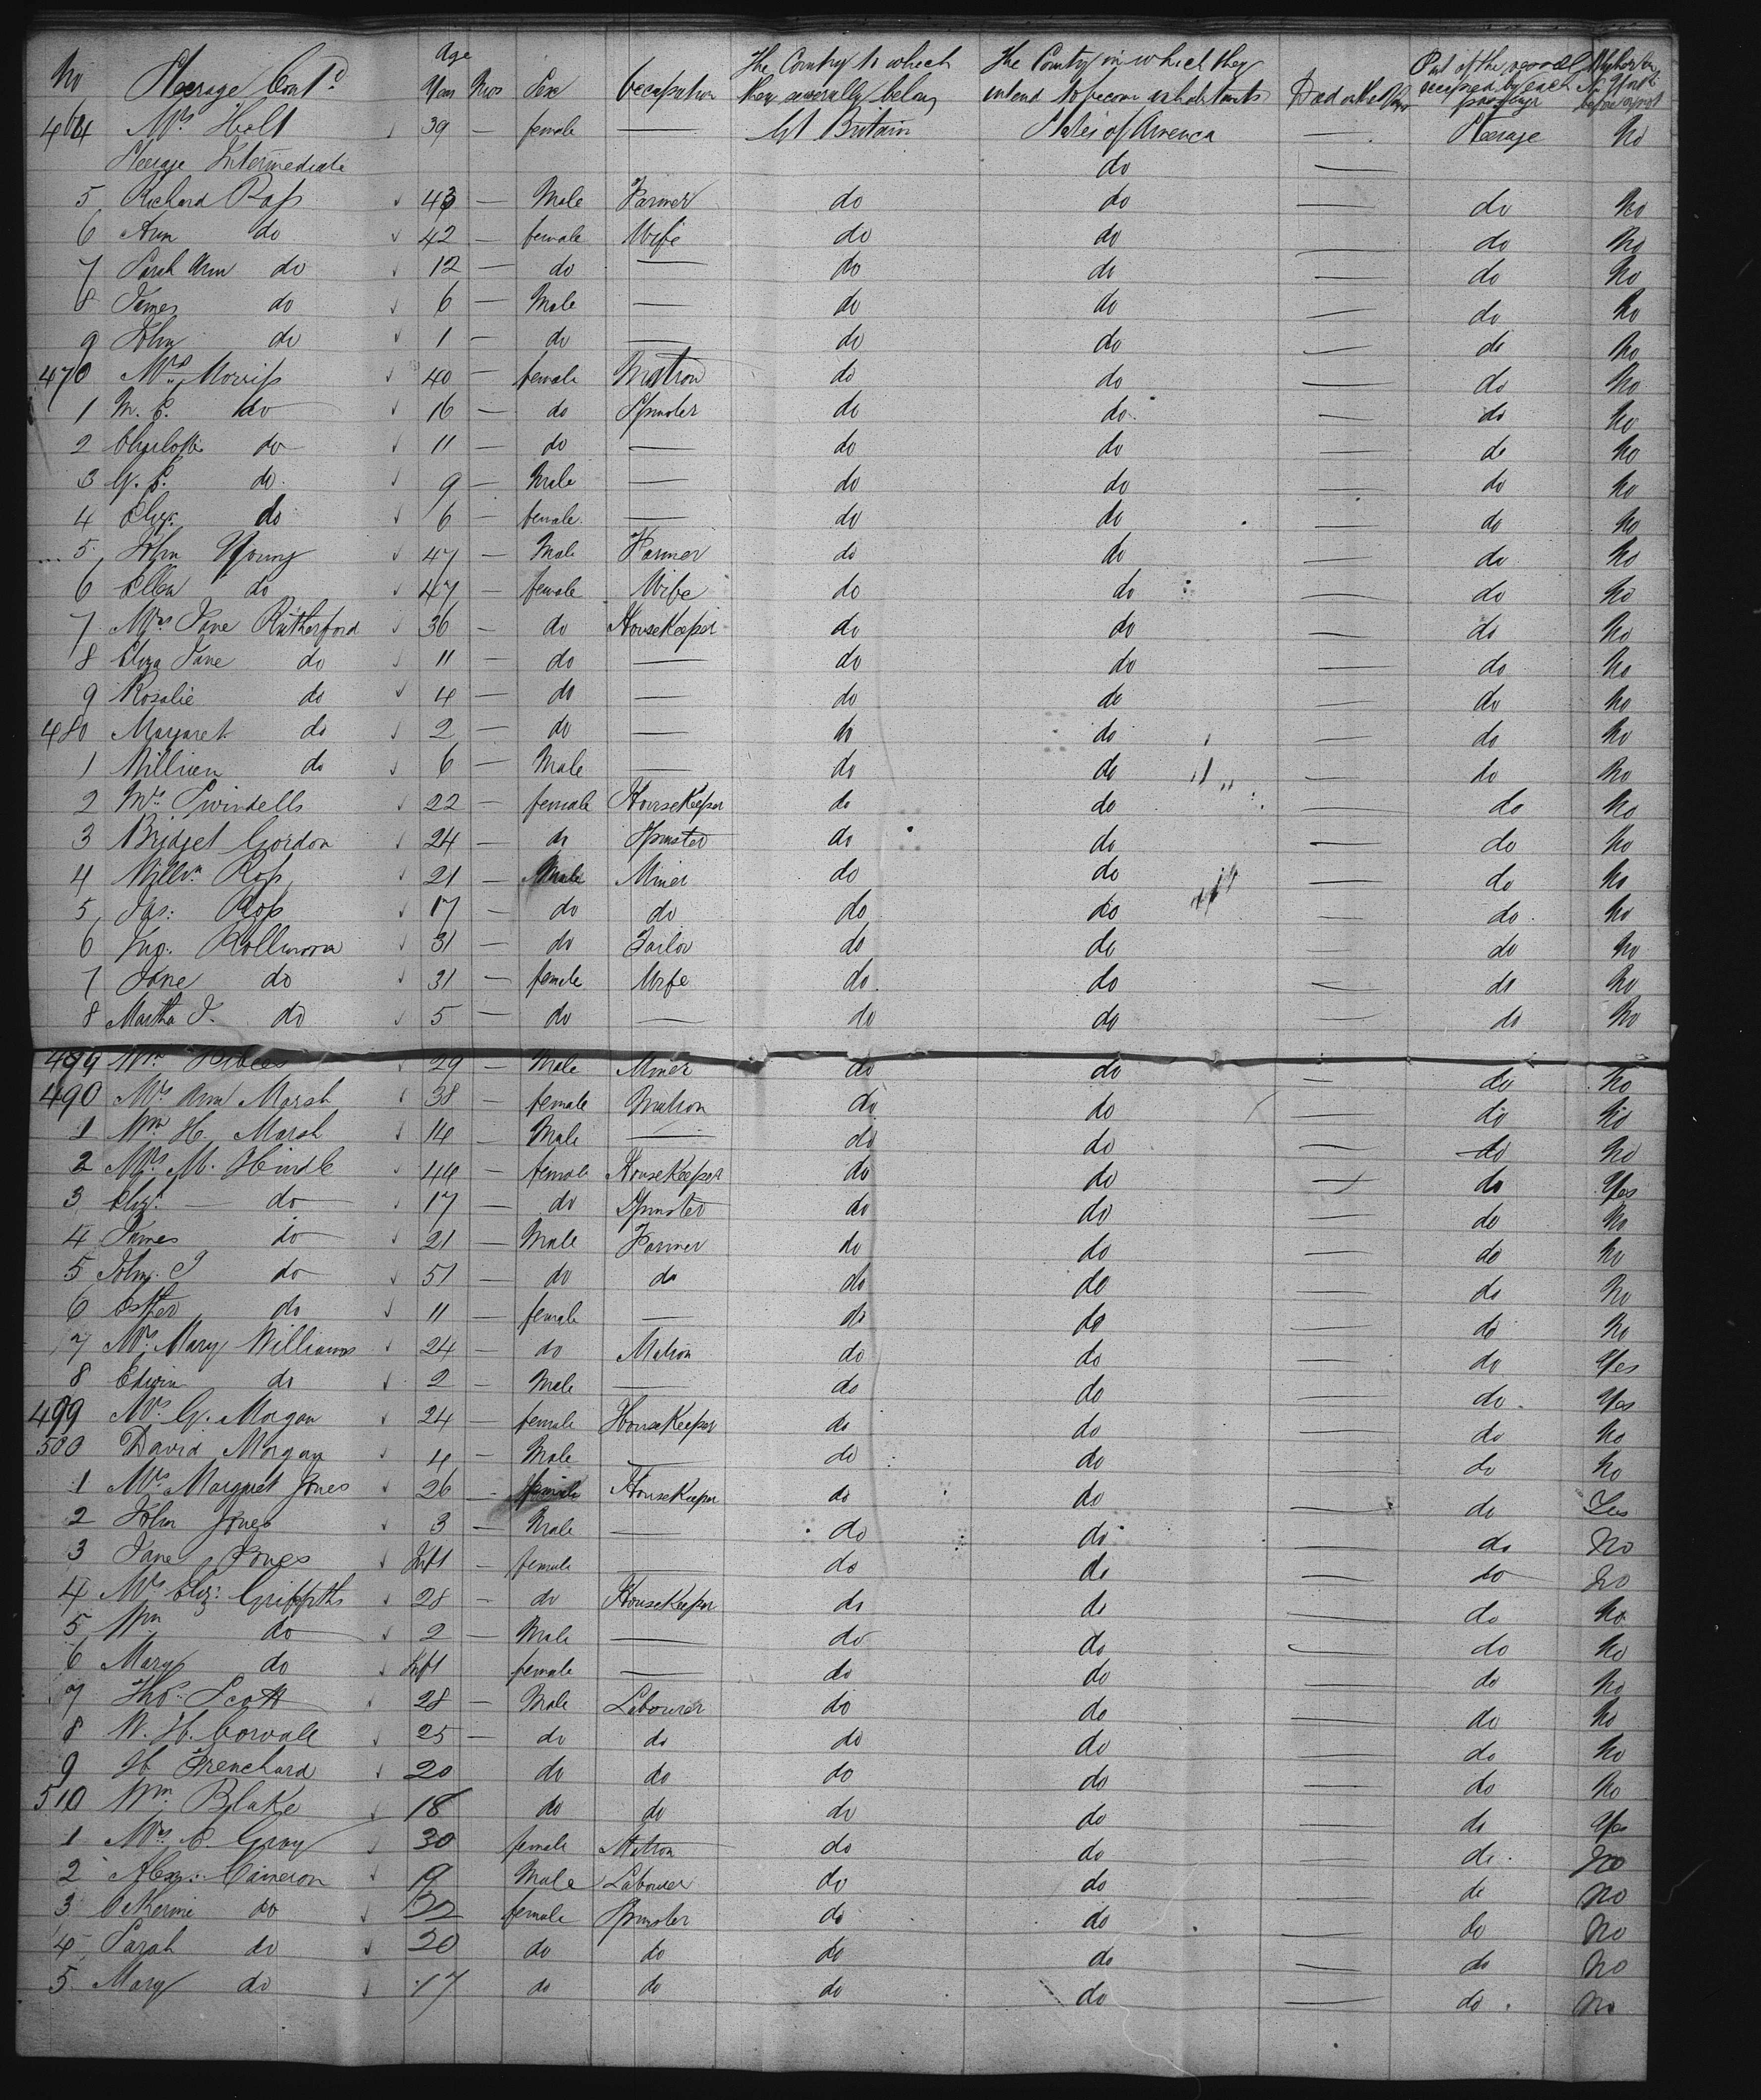 No Steerage Cont.d Age Years Mos Sex Occupation The Country to which they severally belong The Country in which they intend to become inhabitants Died on the Voyage Part of the vessel occupied by each passenger Whether in before or not
464 Mrs Holt 39 — female — Gt Britain States of America — Steerage No
Steerage Intermediate do —
5 Richard Ross 43 — Male Farmer do do — do No
6 Ann do 42 — female Wife do do — do No
7 Sarah Ann do 12 — do — do do — do No
8 James do 6 — Male — do do — do No
9 John do 1 — do — do do — do No
470 Mrs Morriss 40 — female Matron do do — do No
1 M. E. do 16 — do Spinster do do — do No
2 Charlotte do 11 — do — do do — do No
3 G. E. do 9 — Male — do do — do No
4 Eliz: do 6 — female — do do — do No
5 John Young 47 — Male Farmer do do — do No
6 Ellen do 47 — female Wife do do — do No
7 Mrs Jane Rutherford 36 — do HouseKeeper do do — do No
8 Eliza Jane do 11 — do — do do — do No
9 Rosalie do 4 — do — do do — do No
480 Margaret do 2 — do — do do — do No
1 William do 6 — Male — do do — do No
2 Mrs Swindells 22 — female HouseKeeper do do — do No
3 Bridget Gordon 24 — do Spinster do do — do No
4 Willm Ross 21 — Male Miner do do — do No
5 Jas: Ross 17 — do do do do — do No
6 Jno. 31 — do Tailor do do — do No
7 Jane do 31 — female Wife do do — do No
8 Martha J. do 5 — do — do do — do No
489 Wm 29 — Male Miner do do — do No
490 Mrs Ann Marsh 38 — female Matron do do — do No
1 Wm H. Marsh 14 — Male — do do — do No
2 Mrs M. Hindle 44 — female HouseKeeper do do — do Yes
3 Eliz: do 17 — do Spinster do do — do No
4 James do 21 — Male Farmer do do — do No
5 John do 51 — do do do do — do No
6 Esther do 11 — female — do do — do No
7 Mrs Mary Williams 24 — do Matron do do — do Yes
8 Edwin do 2 — Male — do do — do Yes
499 Mrs G. Morgan 24 — female HouseKeeper do do — do No
500 David Morgan 4 — Male — do do — do No
1 Mrs Margaret Jones 26 — female HouseKeeper do do — do Yes
2 John Jones 3 — Male — do do — do No
3 Jane Jones Inft — female — do do — do No
4 Mrs Eliz: Griffiths 28 — do HouseKeeper do do — do No
5 Wm do 2 — Male — do do — do No
6 Mary do Inft female — do do — do No
7 Thos. Scott 28 — Male Labourer do do — do No
8 W. H. 25 — do do do do — do No
9 H. Trenchard 20 do do do do — do No
510 Wm Blake 18 do do do do — do Yes
1 Mrs C. Gray 30 female Matron do do — do No
2 Alex: Cameron 19 Male Labourer do do — do No
3 do 22 female Spinster do do — do No
4 Sarah do 20 do do do do — do No
5 Mary do 17 do do do do — do No